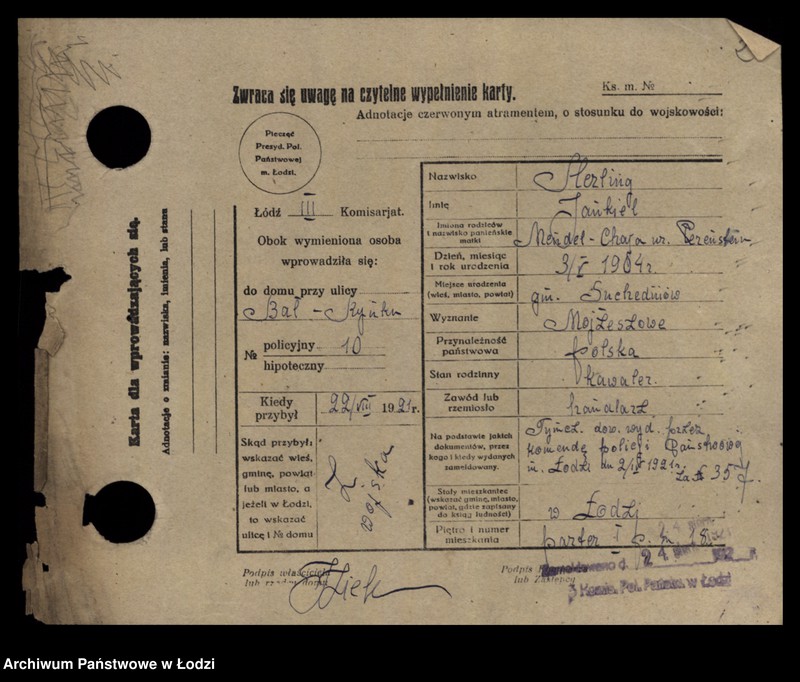 Zwraca się uwagę na czytelne wypełnienie karty.
Ks. m. №
Adnotacje czerwonym atramentem, o stosunku do wojskowości:
Pieczęć
Prezyd. Pol.
Państwowej
m. Łodzi.
Karta dla wprowadzających się.
Adnotacje o zmianie: nazwiska, imienia, lub stanu
Łódź III Komisarjat.
Obok wymieniona osoba
wprowadziła się:
do domu przy ulicy
Bał - Rynku
№ policyjny 10
hipoteczny
Kiedy przybył 22/VIII 1921 r.
Skąd przybył:
wskazać wieś,
gminę, powiat
lub miasto, a
jeżeli w Łodzi,
to wskazać
ulicę i № domu
Z wojska
Nazwisko Sterling
Imię Jankiel
Imiona rodziców
i nazwisko panieńskie
matki
Mendel - Chaja ur.
Dzień, miesiąc
i rok urodzenia
3/V 1904 r.
Miejsce urodzenia
(wieś, miasto, powiat)
gm. Suchedniów
Wyznanie Mojżeszowe
Przynależność
państwowa
polska
Stan rodzinny kawaler.
Zawód lub
rzemiosło
handlarz
Na podstawie jakich
dokumentów, przez
kogo i kiedy wydanych
zameldowany.
Tymcz. dow. wyd. przez
komendę policji Państwowej
m. Łodzi dn 1921 r.
za № 357.
Stały mieszkaniec
(wskazać gminę, miasto,
powiat, gdzie zapisany
do ksiąg ludności)
w Łodzi
Piętro i numer
mieszkania
parter I p. m. 18
Podpis właściciela
lub rządcy domu
Podpis
lub Zastępcy
Zameldowano d. 24
3 Komis. Pol. Państw. w Łodzi
Archiwum Państwowe w Łodzi